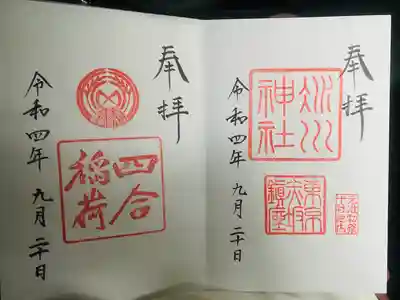 奉拝
氷川
神社
東京
赤坂
鎮座
令和四年 九月二十日
奉拝
四合
稲荷
令和四年 九月二十日